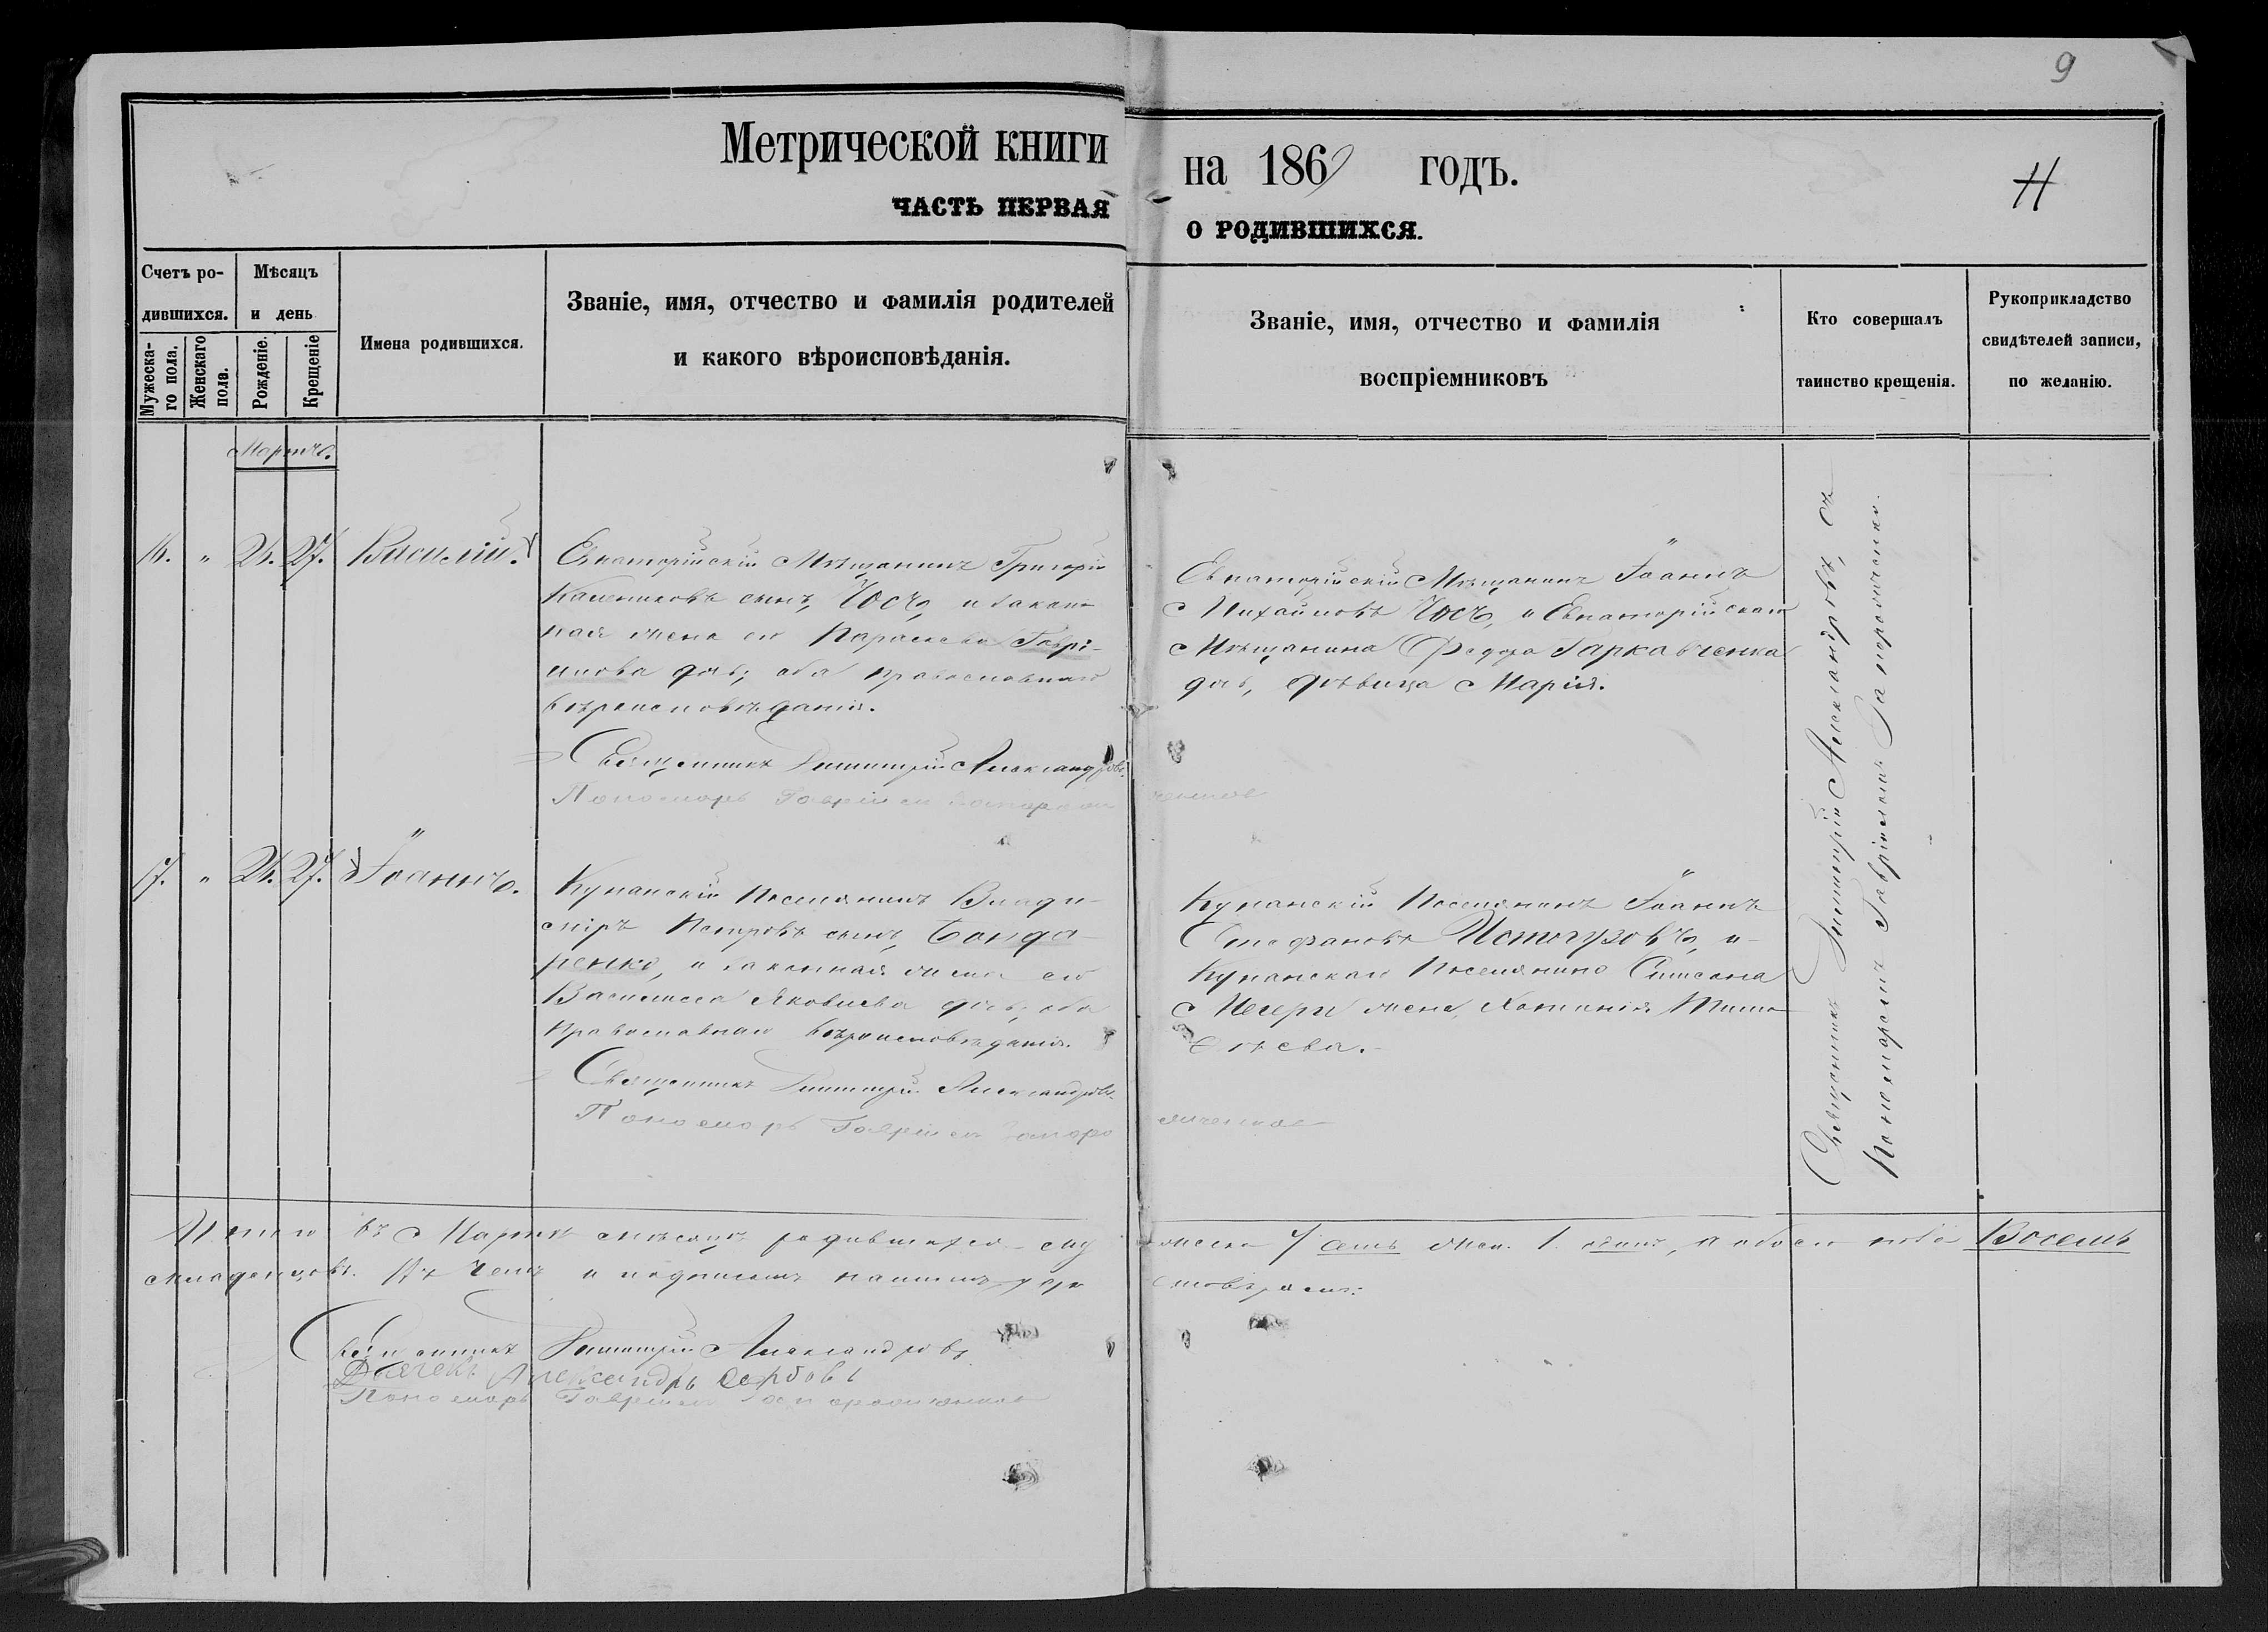 9
Метрической книги на 1869 годъ.
Н
ЧАСТЬ ПЕРВАЯ О РОДИВШИХСЯ.
Счетъ ро-
дившихся.
Мѣсяцъ
и день
Мужеска-
го пола.
Женскаго
пола.
Рожденіе.
Крещеніе
Имена родившихся.
Званіе, имя, отчество и фамилія родителей
и какого вѣроисповѣданія.
Званіе, имя, отчество и фамилія
воспріемниковъ
Кто совершалъ
таинство крещенія.
Рукоприкладство
свидѣтелей записи,
по желанію.
Мартъ.
16. " 27. Василій.
Евпаторійскій Мѣщанинъ Григорій
сынъ, и закон-
ная жена его Параскева Гаврі-
илова дочь; оба православнаго
вѣроисповѣданія.
Священникъ Димитрій Александровъ.
Пономарь Гавріилъ
Евпаторійскій Мѣщанинъ Іоаннъ
Михайловъ и Евпаторійскаго
Мѣщанина Федора Гаркавченка
дочь, дѣвица Марія.
17. " 27. Іоаннъ.
Поселянинъ Влади-
міръ Петровъ сынъ, Бонда-
ренко, и законная жена его
Василисса Яковлева дочь, оба
Православнаго вѣроисповѣданія.
Священникъ Димитрій Александровъ.
Пономарь Гавріилъ
Поселянинъ Іоаннъ
Стефановъ и
Поселянина Симеона
жена,
Священникъ Димитрій Александровъ, съ
Пономаремъ Гавріиломъ
Итого въ Мартѣ мѣсяцѣ родившихся мужеска 7 семь жен. 1. одинъ, а обоего пола Восемь
младенцовъ. Въ чемъ и подписомъ нашимъ
Священникъ Димитрій Александровъ
Дьячекъ Александръ Сербовъ
Пономарь Гавріилъ